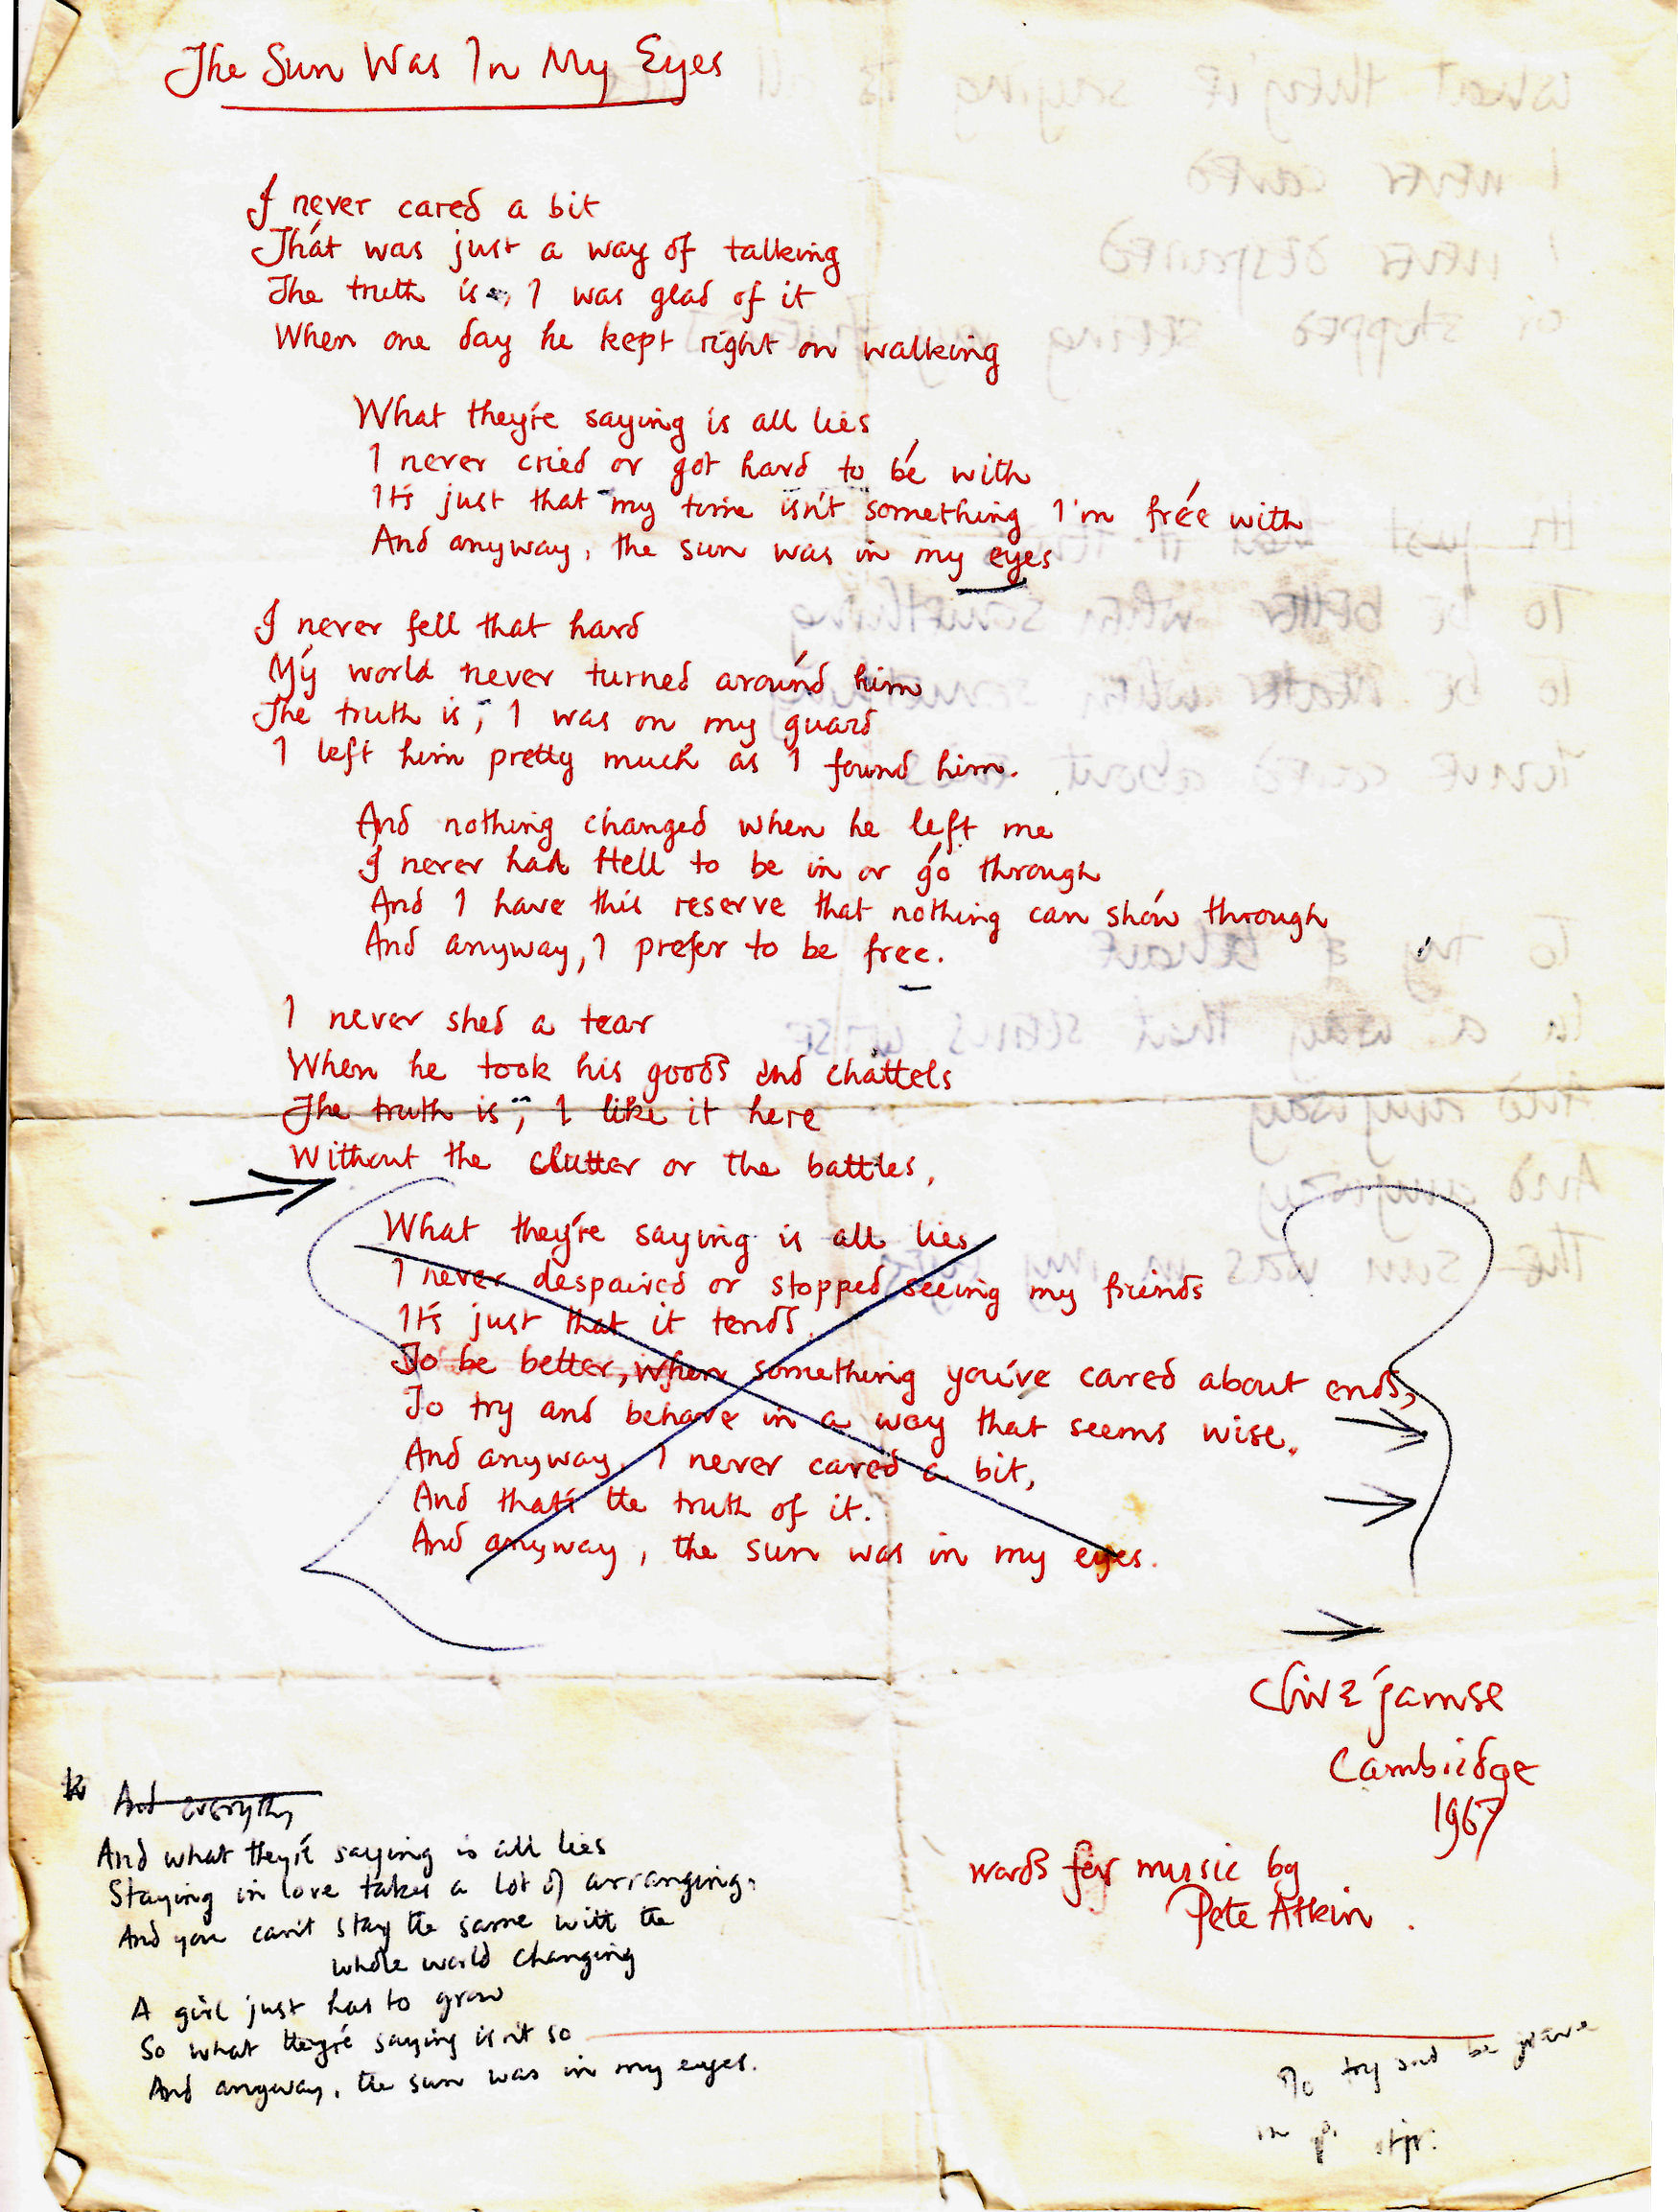 The Sun Was In My Eyes
I never cared a bit
That was just a way of talking
The truth is, I was glad of it
When one day he kept right on walking
What they're saying is all lies
I never cried or got hard to be with
It's just that my time isn't something I'm free with
And anyway, the sun was in my eyes
I never fell that hard
My world never turned around him
The truth is, I was on my guard
I left him pretty much as I found him.
And nothing changed when he left me
I never had Hell to be in or go through
And I have this reserve that nothing can show through
And anyway, I prefer to be free.
I never shed a tear
When he took his goods and chattels
The truth is, I like it here
Without the clutter or the battles,
What they're saying is all lies
I never despaired or stopped seeing my friends
It's just that it tends
To be better, when something you've cared about ends,
To try and behave in a way that seems wise.
And anyway, I never cared a bit,
And that's the truth of it.
And anyway, the sun was in my eyes.
Clive Jamse
Cambridge
1967
words for music by
Pete Atkin.
And everythg
And what they're saying is all lies
Staying in love takes a lot of arranging.
And you can't stay the same with the
whole world changing
A girl just has to grow
So what they're saying isn't so
And anyway, the sun was in my eyes.
To try and be
in